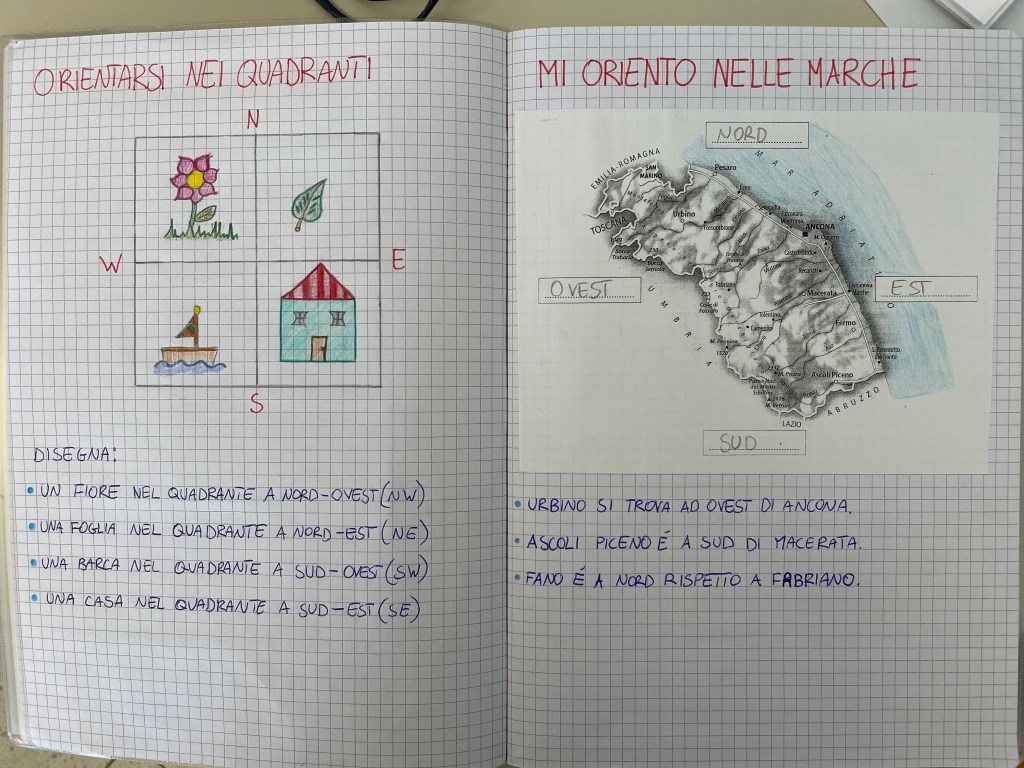 ORIENTARSI NEI QUADRANTI
N
W
E
S
DISEGNA:
• UN FIORE NEL QUADRANTE A NORD-OVEST (NW)
• UNA FOGLIA NEL QUADRANTE A NORD-EST (NE)
• UNA BARCA NEL QUADRANTE A SUD-OVEST (SW)
• UNA CASA NEL QUADRANTE A SUD-EST (SE)
MI ORIENTO NELLE MARCHE
NORD
MAR ADRIATICO
EMILIA-ROMAGNA
SAN MARINO
Pesaro
Fano
TOSCANA
Urbino
Fossombrone
Senigallia
Falconara
ANCONA
Castelfidardo
Recanati
Fabriano
Macerata
OVEST
EST
UMBRIA
Tolentino
Camerino
Fermo
S. Benedetto
del Tronto
Ascoli Piceno
M. Vettore
ABRUZZO
LAZIO
SUD
• URBINO SI TROVA AD OVEST DI ANCONA.
• ASCOLI PICENO É A SUD DI MACERATA.
• FANO É A NORD RISPETTO A FABRIANO.